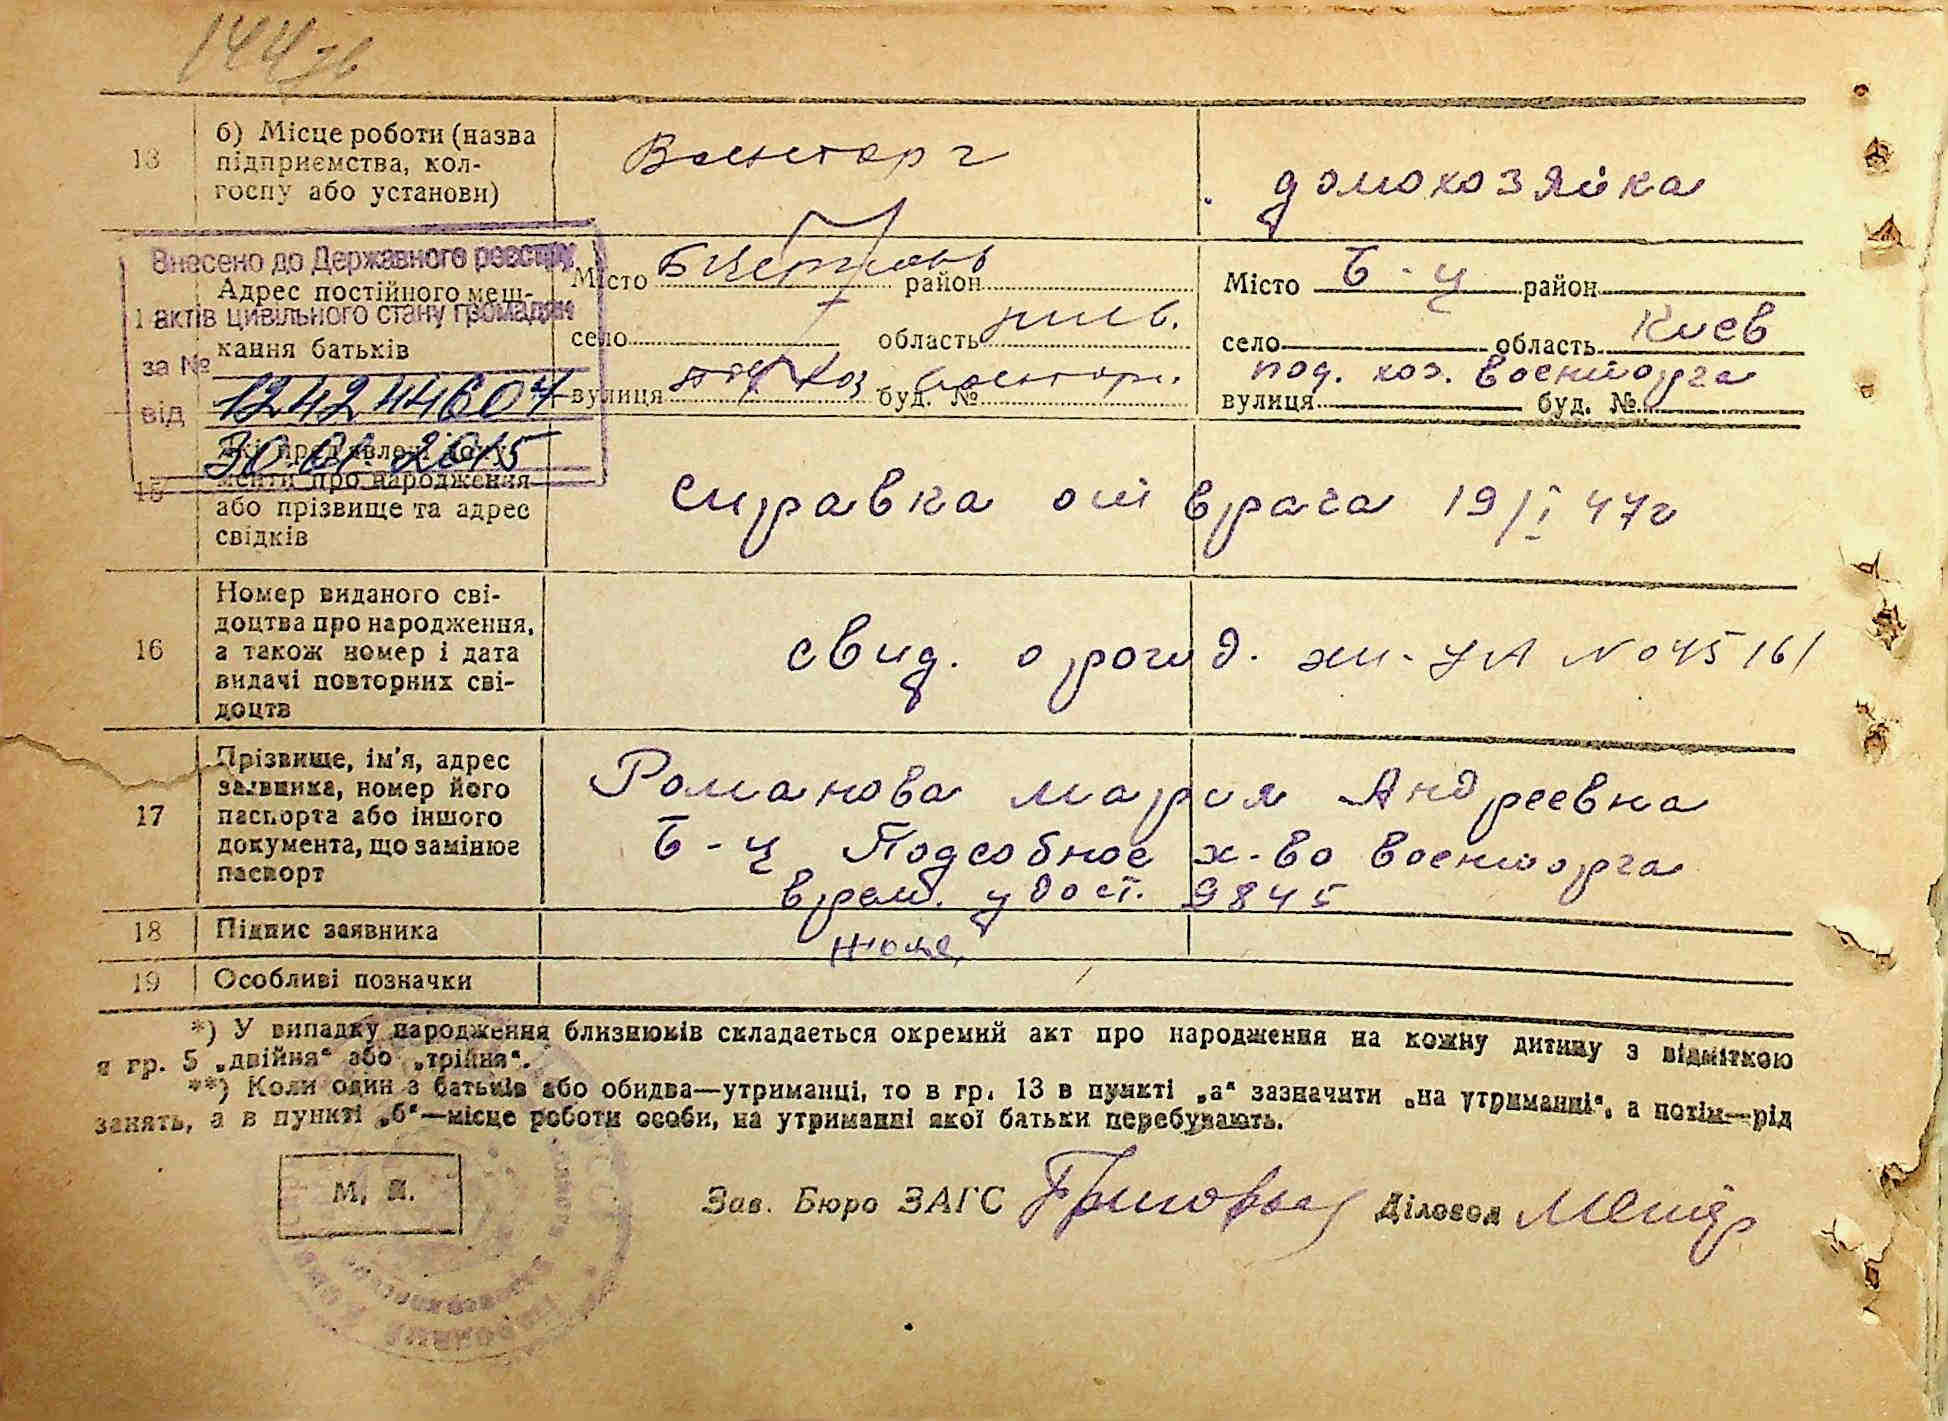 13
б) Місце роботи (назва
підприємства, кол-
госпу або установи)
Военторг
домохозяйка
Внесено до Державного реєстру
актів цивільного стану громадян
за № 12424460
від 30.01.2015
Адрес постійного меш-
кання батьків
Місто Б Церковь район
село область
вулиця буд. №
Місто Б-Ц район
село область Киев
под. хоз. военторга
вулиця буд. №
15
Які пред'явлені доку-
менти про народження
або прізвище та адрес
свідків
справка от врача 19/I 47г
16
Номер виданого сві-
доцтва про народження,
а також номер і дата
видачі повторних сві-
доцтв
свид. о рожд. № 045161
17
Прізвище, ім'я, адрес
заявника, номер його
паспорта або іншого
документа, що замінює
паспорт
Романова Мария Андреевна
Б-Ц Подсобное х-во военторга
врем. удост. 9845
18
Підпис заявника
19
Особливі позначки
*) У випадку народження близнюків складається окремий акт про народження на кожну дитину з відміткою
в гр. 5 „двійня“ або „трійня“.
**) Коли один з батьків або обидва—утриманці, то в гр. 13 в пункті „а“ зазначити „на утриманні“, а потім—рід
занять, а в пункті „б“—місце роботи особи, на утриманні якої батьки перебувають.
М. П.
Зав. Бюро ЗАГС
Діловод